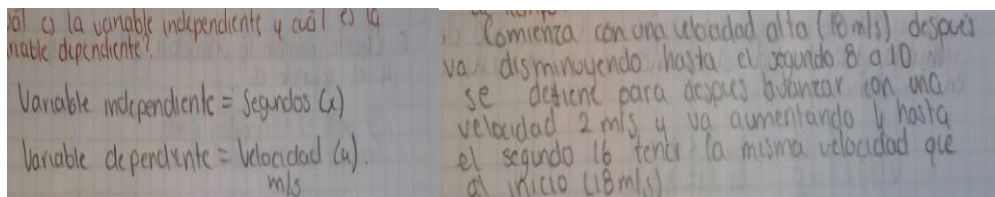 es la variable independiente y cuál es la
variable dependiente?
Variable independiente = Segundos (x)
Variable dependiente = Velocidad (y).
m/s
Comienza con una velocidad alta (18 m/s) después
va disminuyendo hasta el segundo 8 a 10
se detiene para después avanzar con una
velocidad 2 m/s y va aumentando y hasta
el segundo 16 tener la misma velocidad que
al inicio (18 m/s)